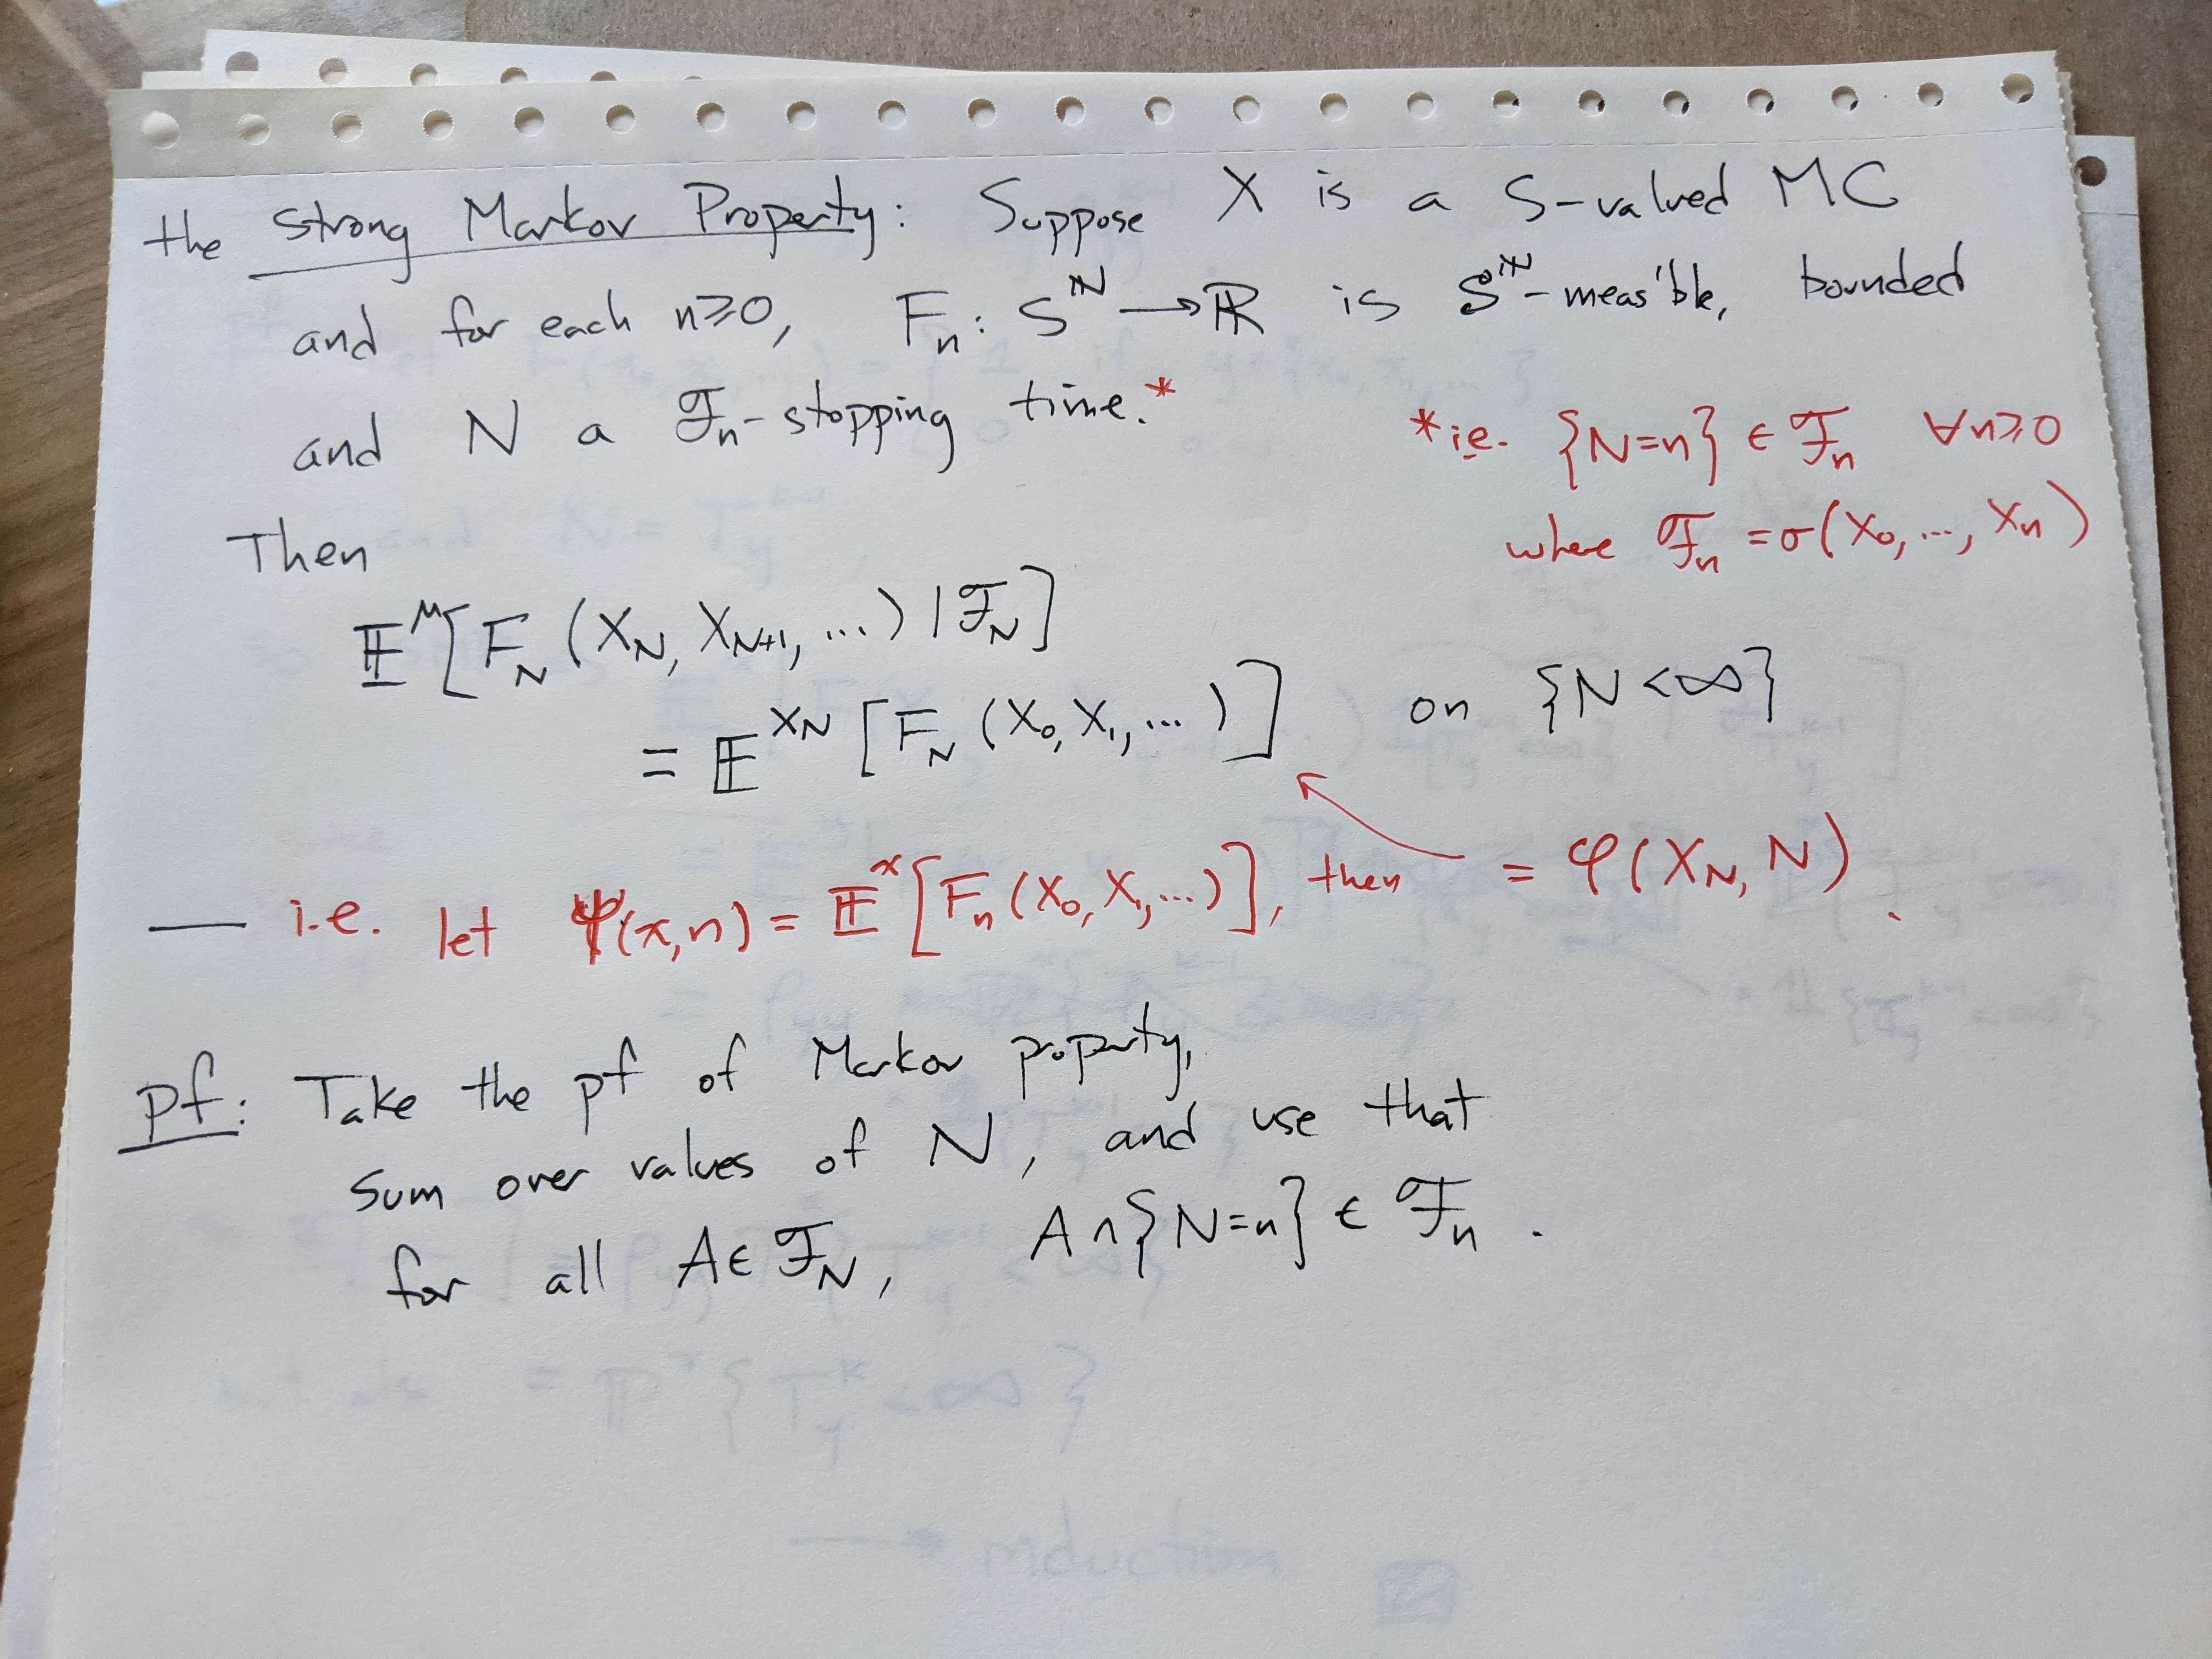 the Strong Markov Property: Suppose X is a S-valued MC
and for each n≥0, Fₙ: S^ℕ → ℝ is 𝒮^ℕ-meas'ble, bounded
and N a ℱₙ-stopping time.*
*i.e. {N=n} ∈ ℱₙ ∀n≥0
where ℱₙ = σ(X₀, ..., Xₙ)
Then
𝔼^μ[F_N (X_N, X_{N+1}, ...) | ℱ_N]
= 𝔼^{X_N} [F_N (X₀, X₁, ...)] on {N<∞}
— i.e. let φ(x,n) = 𝔼^x[Fₙ(X₀, X₁, ...)], then = φ(X_N, N).
pf: Take the pf of Markov property,
sum over values of N, and use that
for all A∈ℱ_N, A∩{N=n} ∈ ℱₙ.